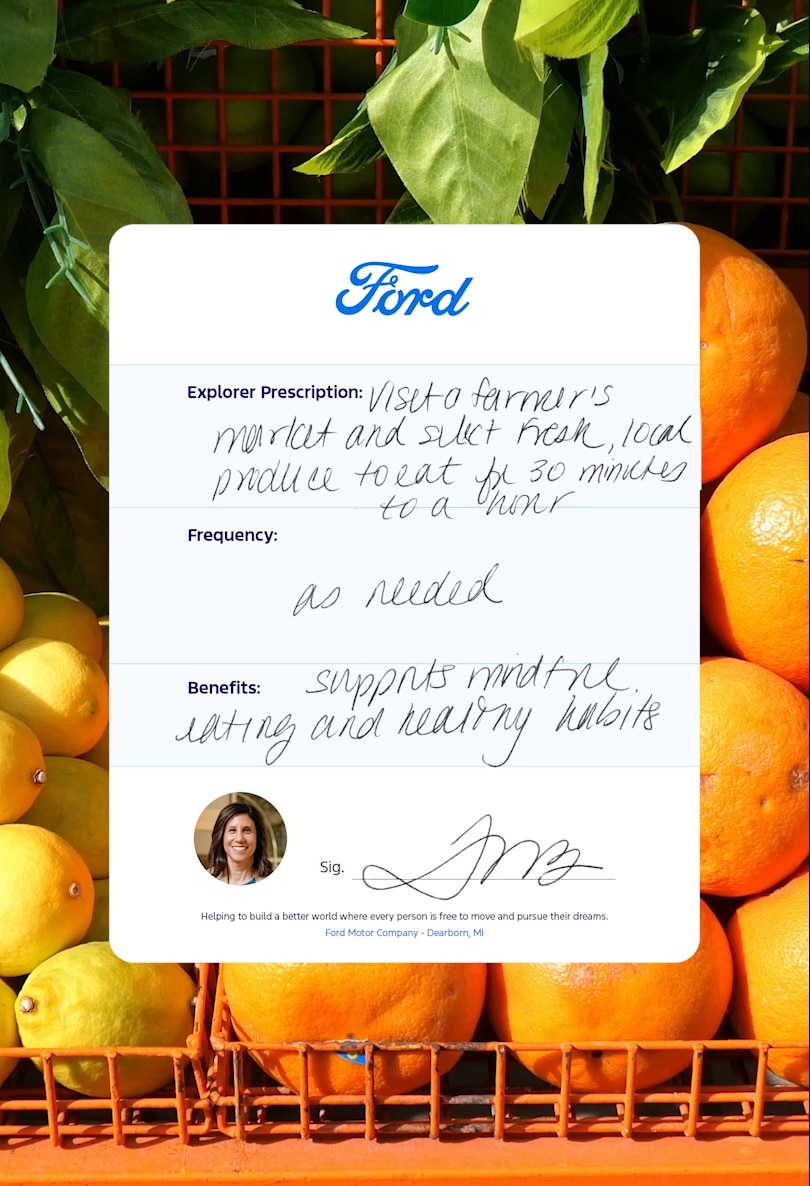 Ford
Explorer Prescription: Visit a farmer's
market and select fresh, local
produce to eat for 30 minutes
to a hour
Frequency:
as needed
Benefits: supports mindful
eating and healthy habits
Sig.
Helping to build a better world where every person is free to move and pursue their dreams.
Ford Motor Company - Dearborn, MI